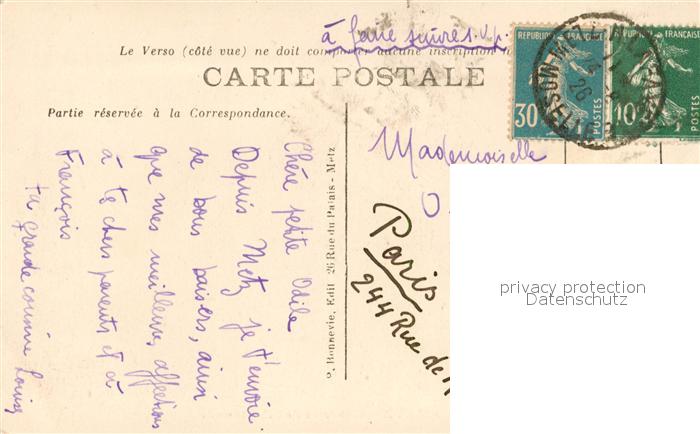 à faire suivre s.v.p.
Le Verso (côté vue) ne doit comporter aucune inscription
CARTE POSTALE
Partie réservée à la Correspondance.
Chère petite Odile
Depuis Metz je t'envoie
de bons baisers, ainsi
que mes meilleures affections
à tes chers parents et à
François
ta grande cousine Louise
Bonnevie, Edit 26 Rue du Palais - Metz
Mademoiselle
O.
Paris
244 Rue de
30
POSTES
REPUBLIQUE FRANÇAISE
10
POSTES
privacy protection
Datenschutz